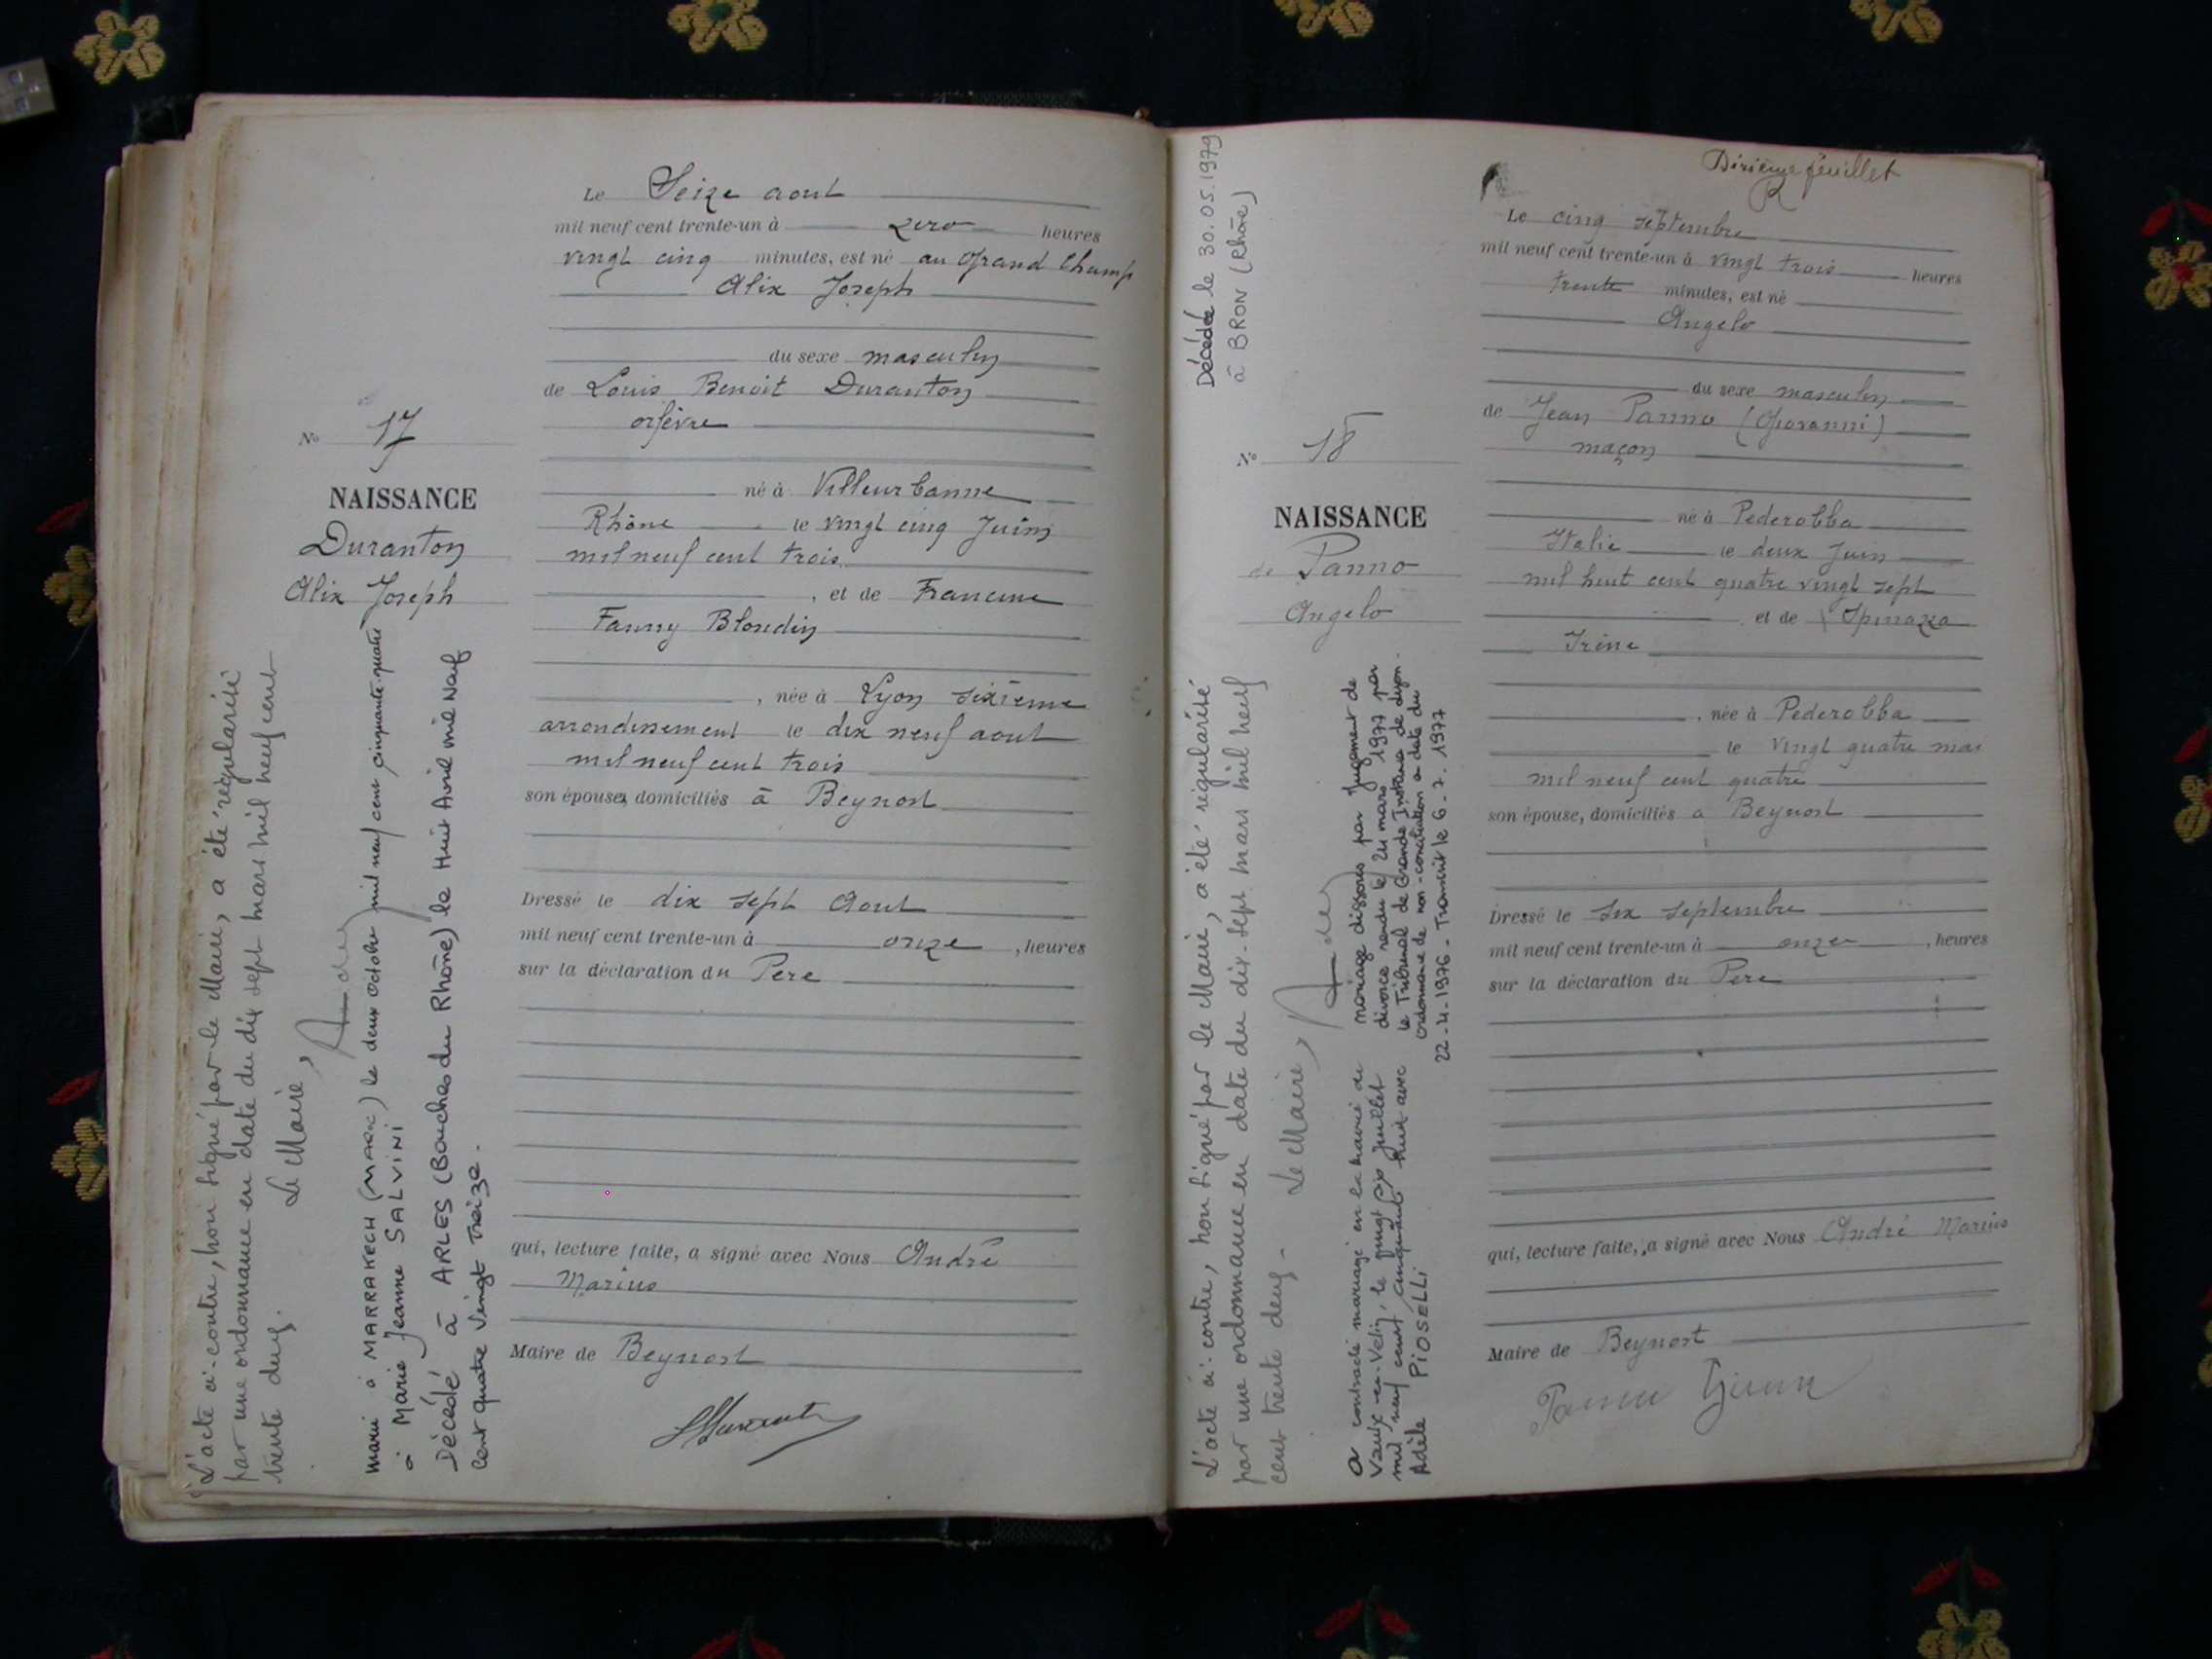 Le Seize aout
mil neuf cent trente-un à zero heures
vingt cinq minutes, est né au Grand Champ
Alix Joseph
du sexe masculin
de Louis Benoit Duranton
orfèvre
né à Villeurbanne
Rhône le vingt cinq Juin
mil neuf cent trois
, et de Francine
Fanny Blondin
, née à Lyon sixième
arrondissement le dix neuf aout
mil neuf cent trois
son épouse, domiciliés à Beynost
Dressé le dix sept Aout
mil neuf cent trente-un à onze , heures
sur la déclaration du Père
qui, lecture faite, a signé avec Nous André
Marius
Maire de Beynost
No 17
NAISSANCE
Duranton
Alix Joseph
L'acte ci-contre, non signé par le Maire, a été régularisé
par une ordonnance en date du dix sept mars mil neuf cent
trente deux.
Le Maire,
Marié à MARRAKECH (MAROC) le deux octobre mil neuf cent cinquante-quatre
à Marie Jeanne SALVINI
Décédé à ARLES (Bouches du Rhône) le Huit Avril mil Neuf
Cent quatre Vingt Treize.
Dixième feuillet
Le cinq septembre
mil neuf cent trente-un à vingt trois heures
trente minutes, est né
Angelo
du sexe masculin
de Jean Panno (Giovanni)
maçon
né à Pederobba
Italie le deux Juin
mil huit cent quatre vingt sept
et de Spinazza
Irène
, née à Pederobba
le vingt quatre mai
mil neuf cent quatre
son épouse, domiciliés à Beynost
Dressé le six septembre
mil neuf cent trente-un à onze , heures
sur la déclaration du Père
qui, lecture faite, a signé avec Nous André Marius
Maire de Beynost
No 18
NAISSANCE
de Panno
Angelo
Décédée le 30.05.1979
à BRON (Rhône)
L'acte ci-contre, non signé par le Maire, a été régularisé
par une ordonnance en date du dix-sept mars mil neuf
cent trente deux.
Le Maire,
a contracté mariage en la mairie de
Vaulx-en-Velin, le vingt six juillet
mil neuf cent cinquante huit avec
Adèle PIOSELLI
mariage dissous par jugement de
divorce rendu le 24 mars 1977 par
le Tribunal de Grande Instance de Lyon.
ordonnance de non-conciliation en date du
22-4-1976 - Transcrit le 6.7.1977